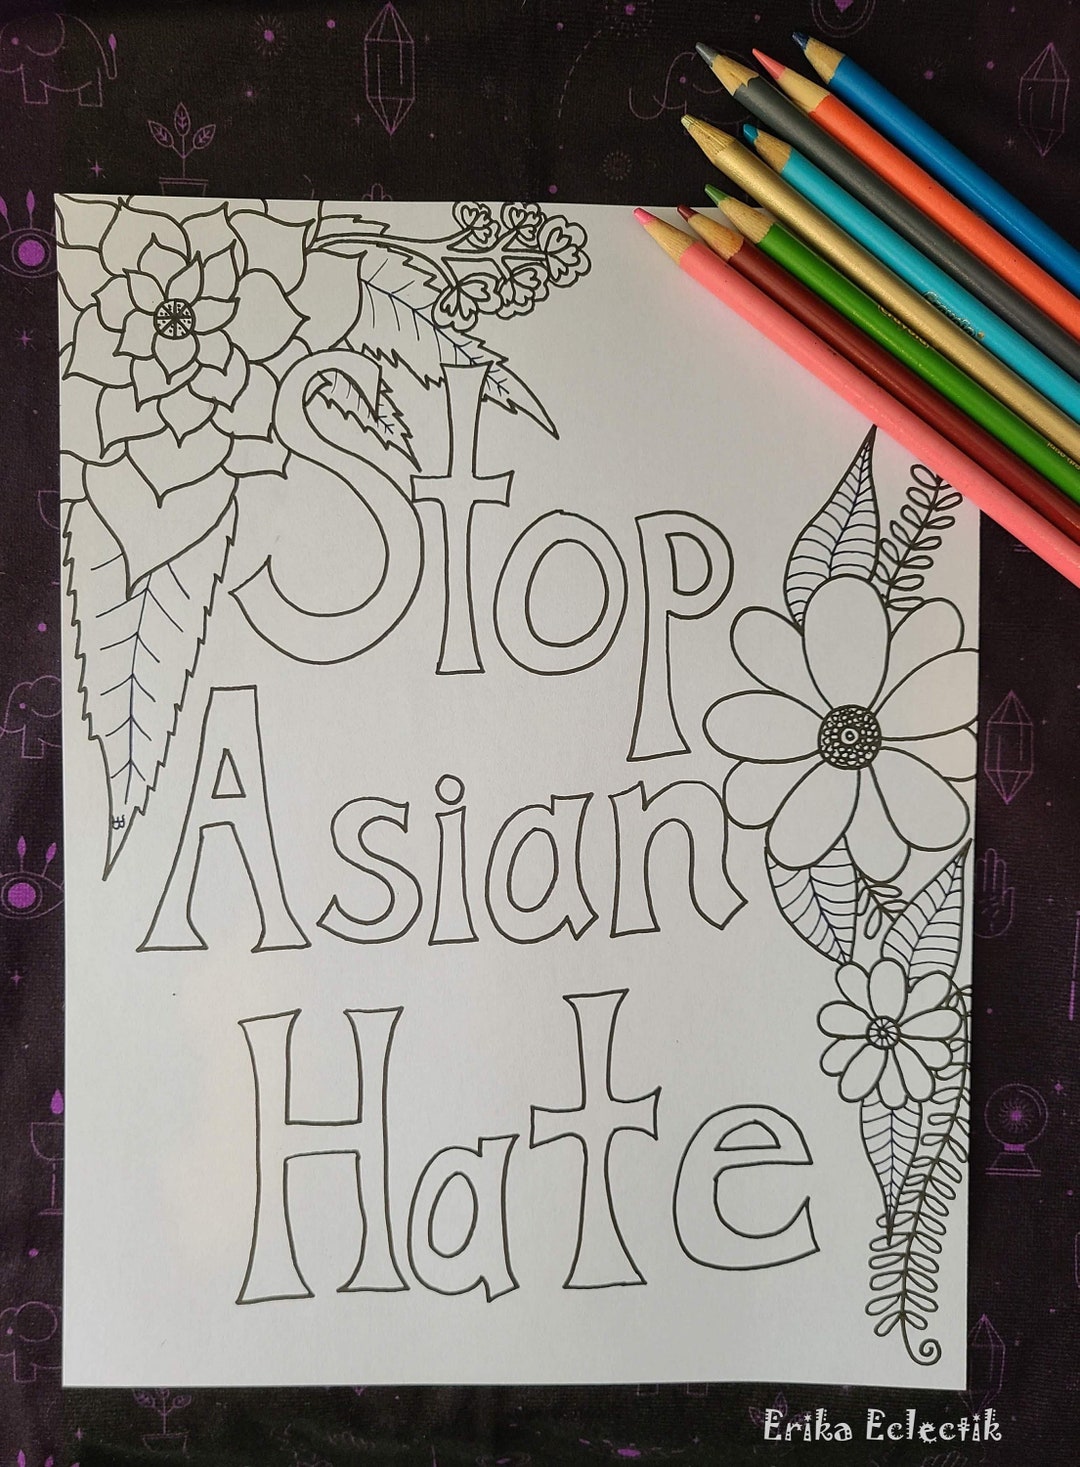 Stop
Asian
Hate
Erika Eclectik